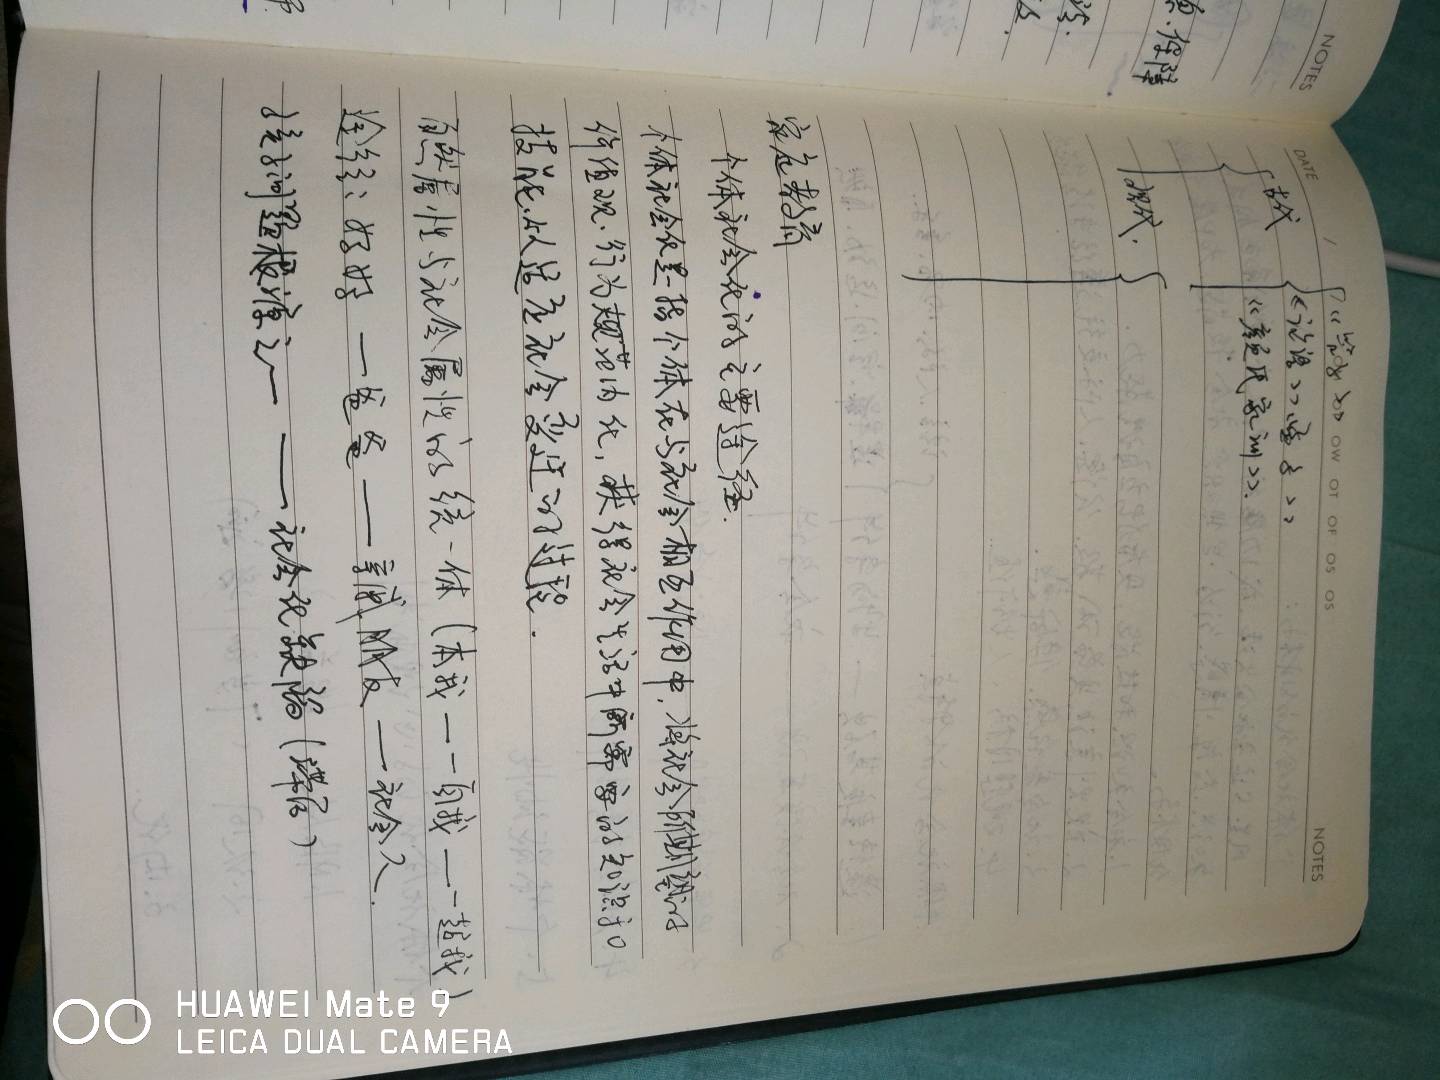 NOTES
保障
DATE / / MO TU WE TH FR SA SU
NOTES
古代
《论语》
《颜氏家训》.
现代.
家庭教育
个体社会化的主要途径.
个体社会化是一指个体在与社会相互作用中,将社会所期望的
价值观、行为规范内化,获得社会生活中所需要的知识和
技能,以适应社会变迁的过程.
自然属性与社会属性的统一体(本我——自我——超我)
途径:妈妈——爸爸——亲戚、朋友——社会人.
孩子问题根源之一——社会化缺陷(滞后)
HUAWEI Mate 9
LEICA DUAL CAMERA